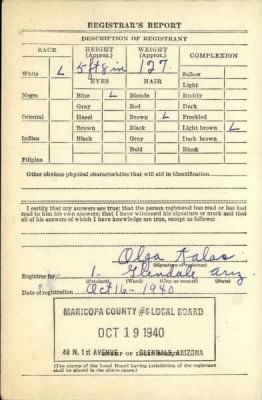 REGISTRAR'S REPORT
DESCRIPTION OF REGISTRANT
RACE HEIGHT (Approx.) WEIGHT (Approx.) COMPLEXION
5 ft 8 in 127
White Sallow
EYES HAIR Light
Negro Blue Blonde Ruddy
Gray Red Dark
Oriental Hazel Brown Freckled
Brown Black Light brown
Indian Black Gray Dark brown
Bald Black
Filipino
Other obvious physical characteristics that will aid in identification
I certify that my answers are true; that the person registered has read or has had
read to him his own answers; that I have witnessed his signature or mark and that
all of his answers of which I have knowledge are true, except as follows:
Olga Kalas
(Signature of registrar)
Registrar for 1- Glendale Ariz
(Precinct) (Ward) (City or county) (State)
Date of registration Oct 16- 1940
MARICOPA COUNTY #6 LOCAL BOARD
OCT 19 1940
40 N. 1st AVENUE GLENDALE, ARIZONA
(STAMP OF LOCAL BOARD)
(The stamp of the Local Board having jurisdiction of the registrant
shall be placed in the above space.)